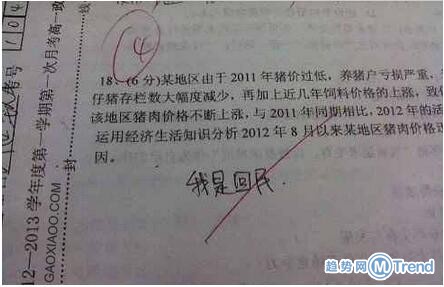 14
18、(6 分)某地区由于 2011 年猪价过低，养猪户亏损严重，
仔猪存栏数大幅度减少，再加上近几年饲料价格的上涨，致
该地猪肉价格不断上涨，与 2011 年同期相比，2012 年的活
运用经济生活知识分析 2012 年 8 月以来某地区猪肉价格
因。
我是回民.
12—2013 学年度第一学期第一次月考高一政
GAOXIAOO.COM
封
线
考号
104
趋势网 MTrend